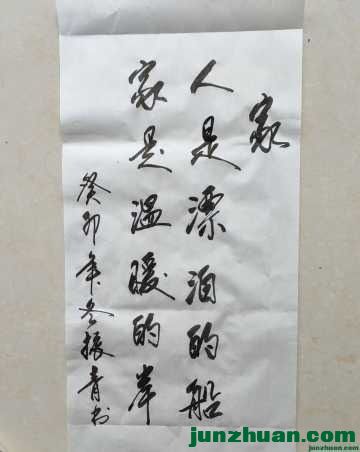 家
人是漂泊的船
家是温暖的岸
癸卯年冬振青书
junzhuan.com
junzhuan.com